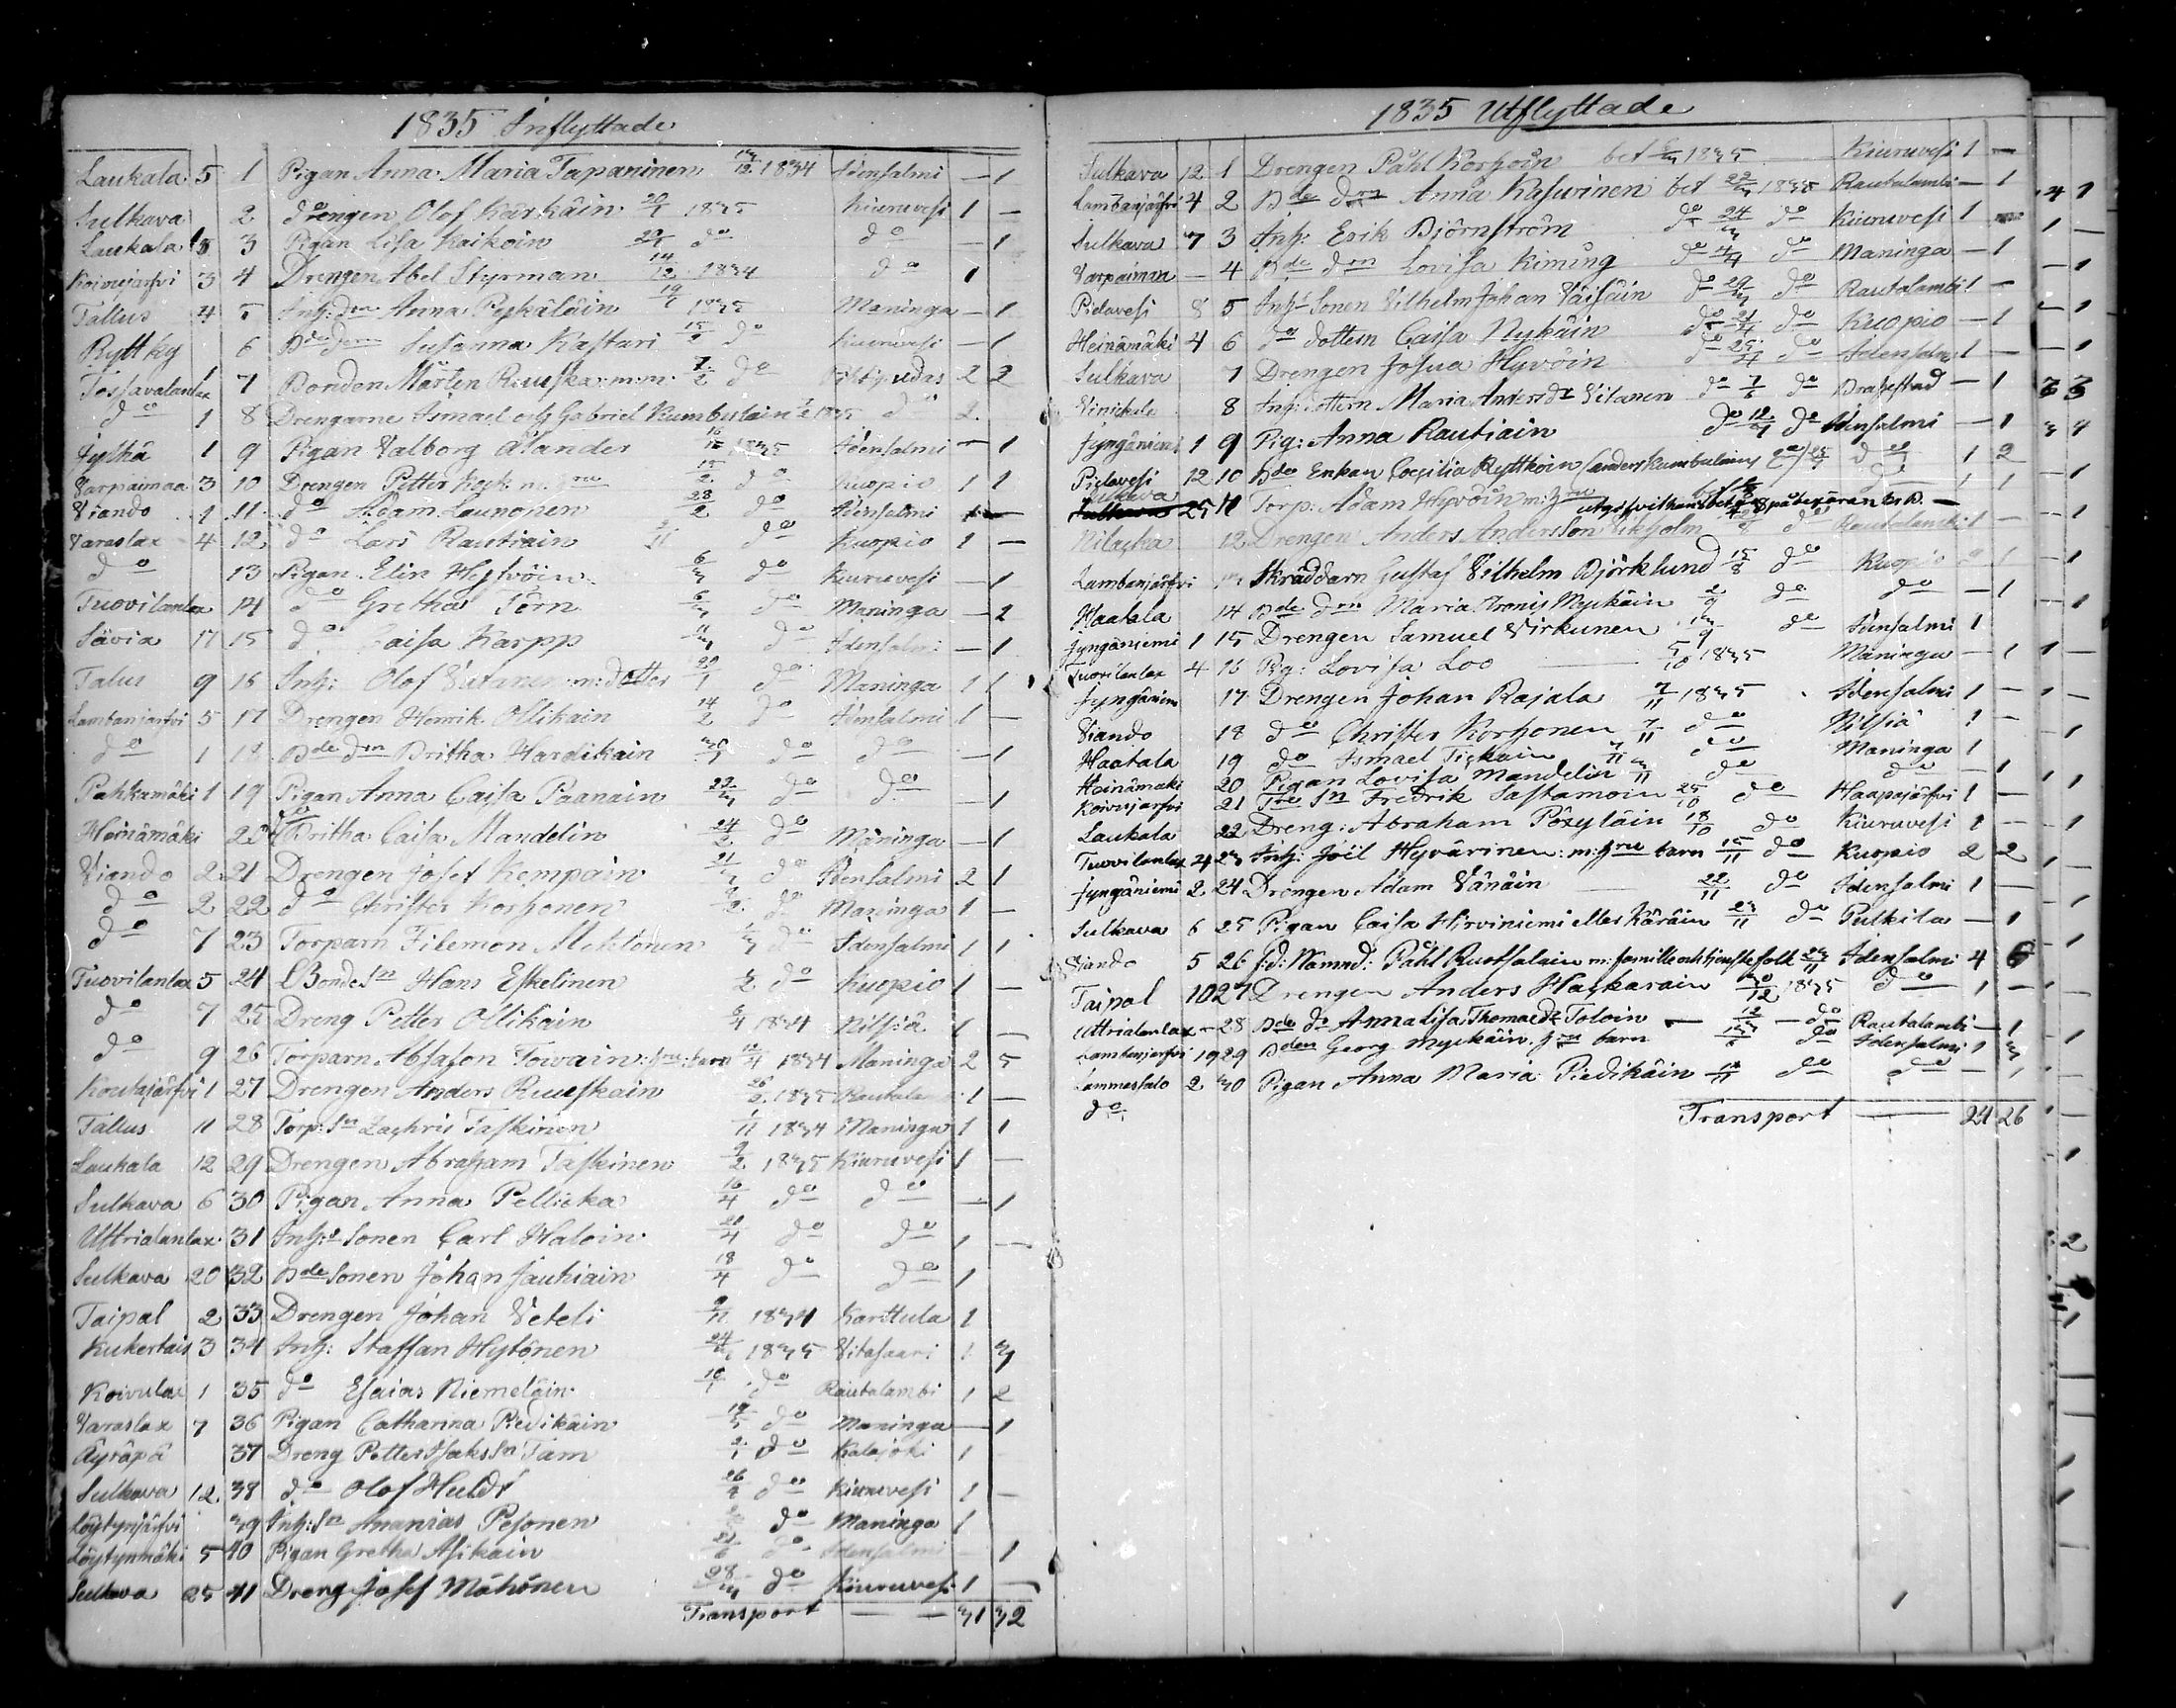 1835 Inflyttade
Laukala 5 1 Pigan Anna Maria Tapaninen 13/12 1834 Idensalmi — 1
Sulkava 2 drengen Olof Kärkäin 20/1 1835 Kiuruvesi 1 —
Laukala 3 Pigan Lisa Kaikoin d:o d:o — 1
Koivujärfvi 3 4 Drengen Abel Styrman 14/12 1834 d:o 1
Tallus 4 5 Inh: d:rn Anna Peskäläin 19/1 1835 Maninga — 1
Rytt ky 6 B:de d:rn Susanna Kastari d:o Kiuruvesi — 1
Tossavalanlax 1 7 Bonden Mårten Ruuska m: m: 7/2 d:o 2 2
d:o 1 8 Drengarne Ismael och Gabriel Kumbulain 1835 d:o 2
Jylhä 1 9 Pigan Valborg Ålander 1835 Idensalmi — 1
Varpaimaa 3 10 Drengen Petter Kock m. h:ru d:o Kuopio 1 1
Viando 1 11 d:o Adam Launonen 28/2 d:o Idensalmi
Varaslax 4 12 d:o Lars Rautiain d:o Kuopio 1 —
d:o 13 Pigan Elin Hyfvöin 6/3 d:o Kiuruvesi — 1
Tuovilanlax 14 d:o Gretha Törn 6/3 d:o Maninga — 2
Sävia 17 15 d:o Caisa Karpp d:o Idensalmi — 1
Talus 9 16 Inh: Olof Vatanen m: dotter 29/1 d:o Maninga 1 1
Lambanjärfvi 5 17 Drengen Henrik Ollikain 14/2 d:o Idensalmi 1 —
d:o 1 18 B:de d:rn Britha Hardikain d:o d:o — 1
Pahkamäki 1 19 Pigan Anna Caisa Paanain 22/3 d:o d:o — 1
Heinämäki 20 Britha Caisa Mandelin 24/2 d:o Maninga — 1
Viando 2 21 Drengen Josef Kempain 21/3 d:o Idensalmi 2 1
d:o 2 22 d:o Christer Korhonen d:o Maninga 1 —
d:o 7 23 Torparn Filemon Moktonen d:o Idensalmi 1 1
Tuovilanlax 5 24 Bonde S:n Hans Eskelinen d:o Kuopio 1 —
d:o 7 25 Dreng Petter Ollikain 1834 Nilsiä 1 —
d:o 9 26 Torparn Absalon Towain: h:ru: barn 1834 Maninga 2 5
Koutajärfvi 1 27 Drengen Anders Ruuskain 1835 Rautalambi 1 —
Tallus 11 28 Torp: S:n Zachris Taskinen 1/11 1834 Maninga 1 1
Laukala 12 29 Drengen Abraham Taskinen 9/2 1835 Kiuruvesi 1 —
Sulkava 6 30 Pigan Anna Pellicka 16/4 d:o d:o — 1
Uttrialanlax 31 Inh:s Sonen Carl Haloin d:o d:o 1 —
Sulkava 20 32 B:de Sonen Johan Jauhiain 18/4 d:o d:o 1
Taipal 2 33 Drengen Johan Veteli 9/11 1834 Karttula 1
Kukertais 3 34 Inh: Staffan Hytönen 1835 Vitasaari 1 3
Koivulax 1 35 d:o Esaias Niemeläin d:o Rautalambi 1 2
Varaslax 7 36 Pigan Catharina Piedikäin 19/5 d:o Maninga — 1
Äyräpä 37 Dreng Petter Isaks S:n Tam d:o Kalajoki 1
Sulkava 12 38 d:o Olof Huldt d:o Kiuruvesi 1 —
Löytynjärfvi 39 Inh: S:n Ananias Pesonen d:o Maninga 1
Löytynmäki 5 40 Pigan Gretha Asikain d:o Idensalmi 1
Sulkava 25 41 Dreng Josef Mähönen 28/3 d:o Kiuruvesi 1 —
Transport — — 31 32
1835 Utflyttade
Sulkava 12 1 Drengen Påhl Korhoin bet 1835 Kiuruvesi 1 —
Lambanjärfvi 4 2 B:de d:rn Anna Kasurinen bet 22/3 1835 Rautalambi — 1
Sulkava 7 3 Inh: Erik Björnström d:o 24/3 d:o Kiuruvesi 1
Varpaimaa — 4 B:de d:rn Lovisa Kiming d:o 4/4 d:o Maninga — 1
Pielavesi 8 5 Inh:s Sonen Vilhelm Johan Väisäin d:o 29/3 d:o Rautalambi 1 —
Heinämäki 4 6 d:o dottern Caisa Nykäin d:o d:o Kuopio — 1
Sulkava 7 Drengen Josua Hyvöin d:o d:o Idensalmi 1 —
8 Inh: dottern Maria Anders d:r Vilanen d:o d:o Brahestad — 1
Jyngäniemi 1 9 Pig: Anna Rautiain d:o d:o Idensalmi — 1
Pielavesi 12 10 B:de Enkan Cecilia Ryttkoin (anders Kumbulains d:o 1 2
Sulkava 25 11 Torp. Adam Hyvöin m: h:ru
12 Drengen Anders Andersson Ekholm d:o Rautalambi 1 —
Lambanjärfvi 13 Skräddarn Gustaf Vilhelm Björklund 15/8 d:o Kuopio 1
Haatala 14 B:de d:rn Maria Myckäin 2/9 d:o d:o — 1
Jyngäniemi 1 15 Drengen Samuel Virkunen 13/9 d:o Idensalmi 1
Tuovilanlax 4 16 Pig: Lovisa Loo — 5/10 1835 Maninga — 1
Jyngäniemi 17 Drengen Johan Rajala 7/11 1835 Idensalmi 1 —
Viando 18 d:o Christer Korhonen 7/11 d:o Nilsiä 1 —
Haatala 19 d:o Ismael Tickain d:o Maninga 1
Heinämäki 20 Pigan Lovisa Mandelin d:o d:o — 1
Koivujärfvi 21 S:n Fredrik Sastamoin 25/10 d:o Haapajärfvi 1 —
Laukala 22 Dreng: Abraham Pöxyläin 18/10 d:o Kiuruvesi 1 —
Tuovilanlax 4 23 Inh: Joël Hyvärinen: m: h:ru barn 15/11 d:o Kuopio 2 2
Jyngäniemi 2 24 Drengen Adam Vänäin — 22/11 d:o Idensalmi 1 —
Sulkava 6 25 Pigan Caisa Hirviniemi eller Käräin 23/11 d:o Pulkila — 1
Viando 5 26 f:d: Nämnd: Påhl Ruotsalain m: famille och tjenstefolk 23/11 Idensalmi 4 6
Taipal 10 27 Drengen Anders Hackarain 30/12 1835 d:o 1 —
Uttrialanlax — 28 B:de d:o Anna Lisa Thomæ d:r Toloin — — d:o Rautalambi — 1
Lambanjärfvi 19 29 B:den Georg Myckäin h:ru barn d:o Idensalmi 1 3
Lammassalo 2 30 Pigan Anna Maria Piedikäin d:o d:o — 1
d:o
Transport — 24 26